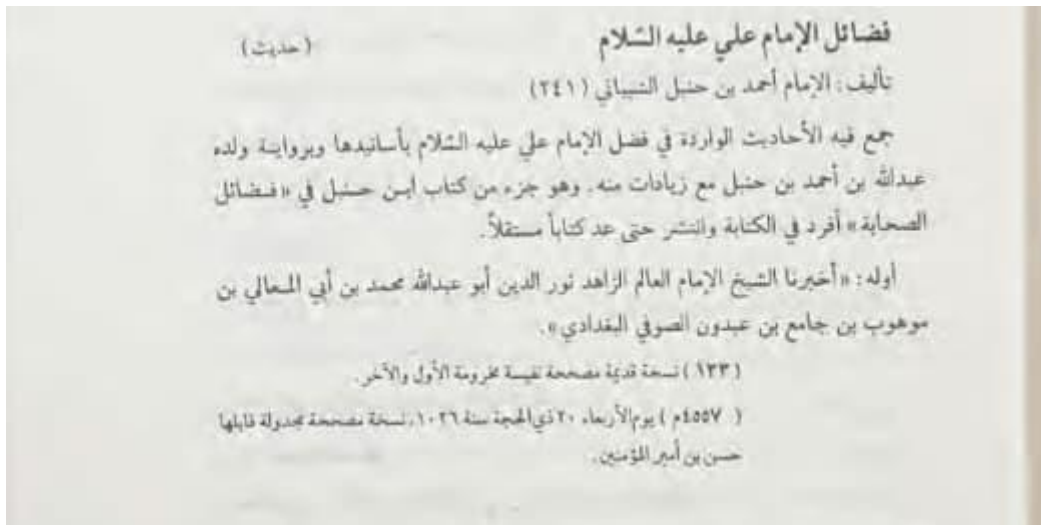 فضائل الإمام علي عليه السّلام (حديث)
تأليف: الإمام أحمد بن حنبل الشيباني (٢٤١)
جمع فيه الأحاديث الواردة في فضل الإمام علي عليه السّلام بأسانيدها وبرواية ولده
عبدالله بن أحمد بن حنبل مع زيادات منه. وهو جزء من كتاب ابن حنبل في «فضائل
الصحابة» أفرد في الكتابة وانتشر حتى عد كتاباً مستقلاً.
أوله: «أخبرنا الشيخ الإمام العالم الزاهد نور الدين أبو عبدالله محمد بن أبي المعالي بن
موهوب بن جامع بن عبدون الصوفي البغدادي».
(١٣٣) نسخة قديمة مصححة نفيسة مخرومة الأول والآخر.
(٤٥٥٧م) يوم الأربعاء ٢٠ ذي الحجة سنة ١٠٢٦، نسخة مصححة مجدولة قابلها
حسن بن أمير المؤمنين.